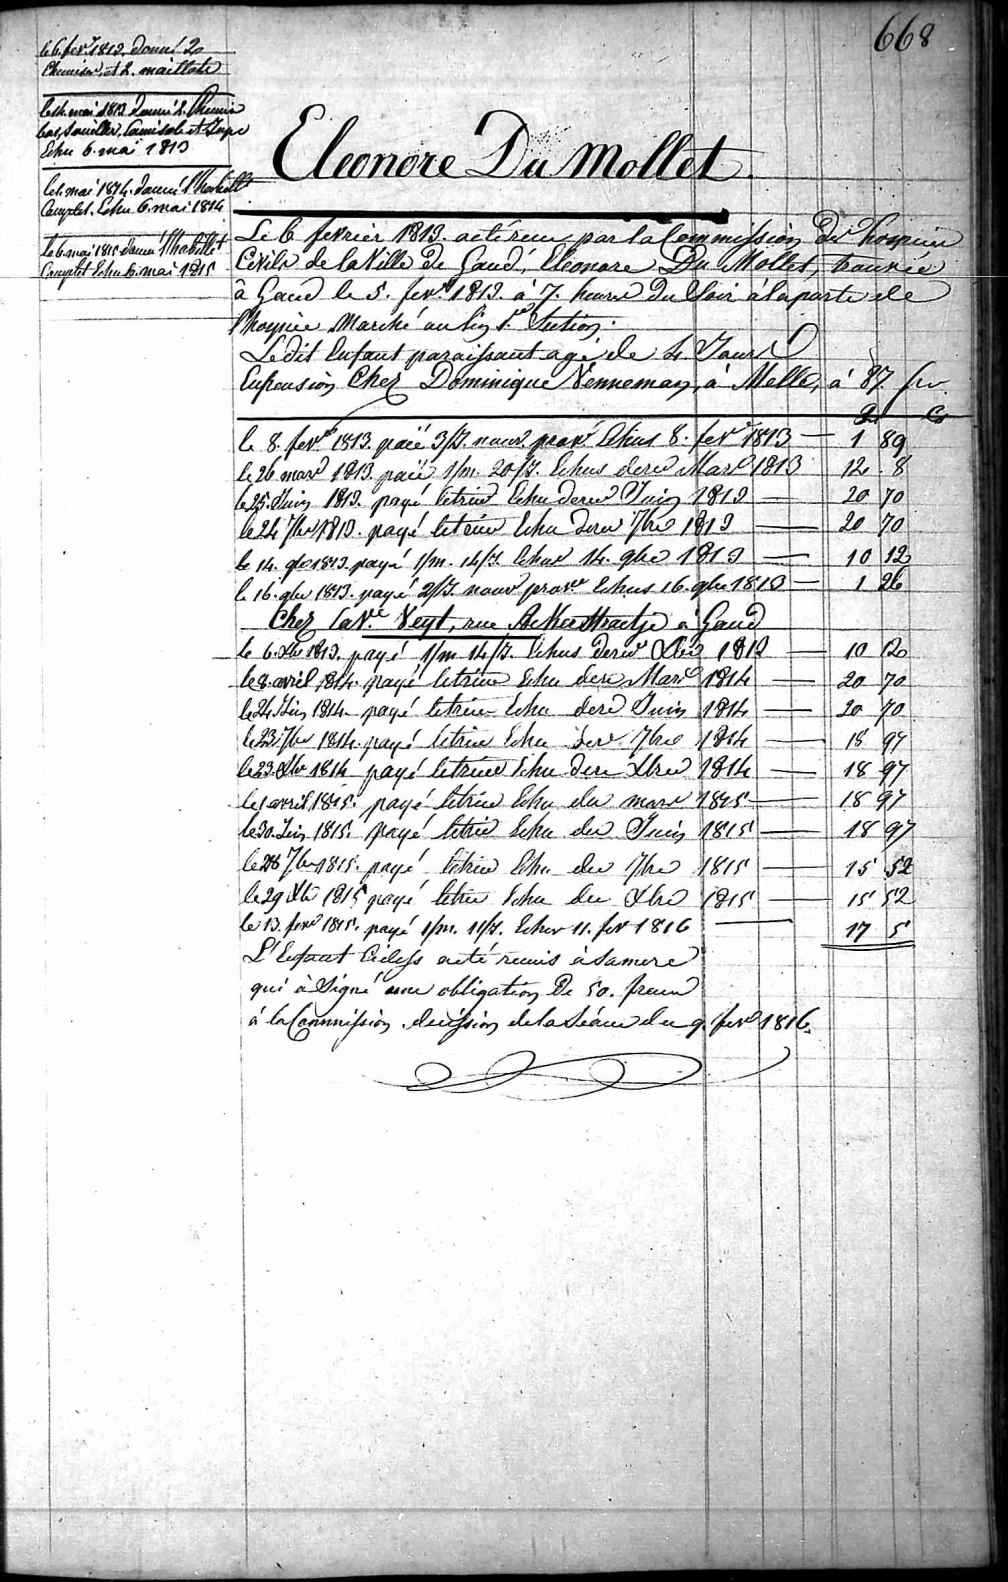 668
le 6. fevr. 1813. donné 2
Chemises, et 2. maillots
le 14. mai 1813 donné 2. Chemis
bas, Souillez, Camisole et Jupe
Echu 6. mai 1813
le 6. mai 1814. donné l'habillt
Complet. Echu 6. mai 1814
le 6 mai 1815 donné l'habillet
Complet Echu 6. mai 1815
Eleonore Du Mollet.
Le 6 fevrier 1813. a été reçu par la Commission des hospices
Civils de la Ville de Gand, Eleonore Du Mollet, trouvée
à Gand le 5. fevr. 1813. à 7. heures du Soir à la porte de
l'hospice Marché au lin 1.e Section.
Ledit Enfant paraissant agé de 4. Jours
En pension Chez Dominique Venneman, à Melle, à 87. fr.
le 8. fevr. 1813. païé 3/J. nour. prov. Echus 8. fevr. 1813 — 1 89
le 26 mars 1813. païé 1/m. 20/J. Echus dere Mars 1813 12 8
le 25. Juin 1813. payé letrim Echu dere Juin 1813 — 20 70
le 24 7bre 1813. payé letrim Echu dere 7bre 1813 — 20 70
le 14. 9bre 1813. payé 1/m. 14/J. Echus 14. 9bre 1813 — 10 12
le 16. 9bre 1813. payé 2/J. nour prov. Echus 16. 9bre 1813 — 1 26
Chez la Ve. Veyt, rue à Gand
le 6. Xbre 1813. payé 1/m 14/J. Echus dere Xbre 1813 — 10 12
le 8. avril 1814. payé letrim Echu dere Mars 1814 — 20 70
le 24 Juin 1814. payé letrim Echu dere Juin 1814 — 20 70
le 23 7bre 1814. payé letrim Echu dere 7bre 1814 — 18 97
le 23. Xbre 1814 payé letrim Echu dere Xbre 1814 — 18 97
le 1 avril 1815. payé letrim Echu der mars 1815 — 18 97
le 30. Juin 1815. payé letrim Echu der Juin 1815 — 18 97
le 28 7bre 1815. payé letrim Echu der 7bre 1815 — 15 52
le 29 Xbre 1815 payé letrim Echu der Xbre 1815 — 15 52
le 13. fevr 1815. payé 1/m. 11/J. Echus 11. fevr 1816 — 17 5
L'Enfant Cidess a été remis à Sa mere
qui à Signé une obligation De 50. francs
à la Commission. decision de la Séance du 9. fevr 1816.